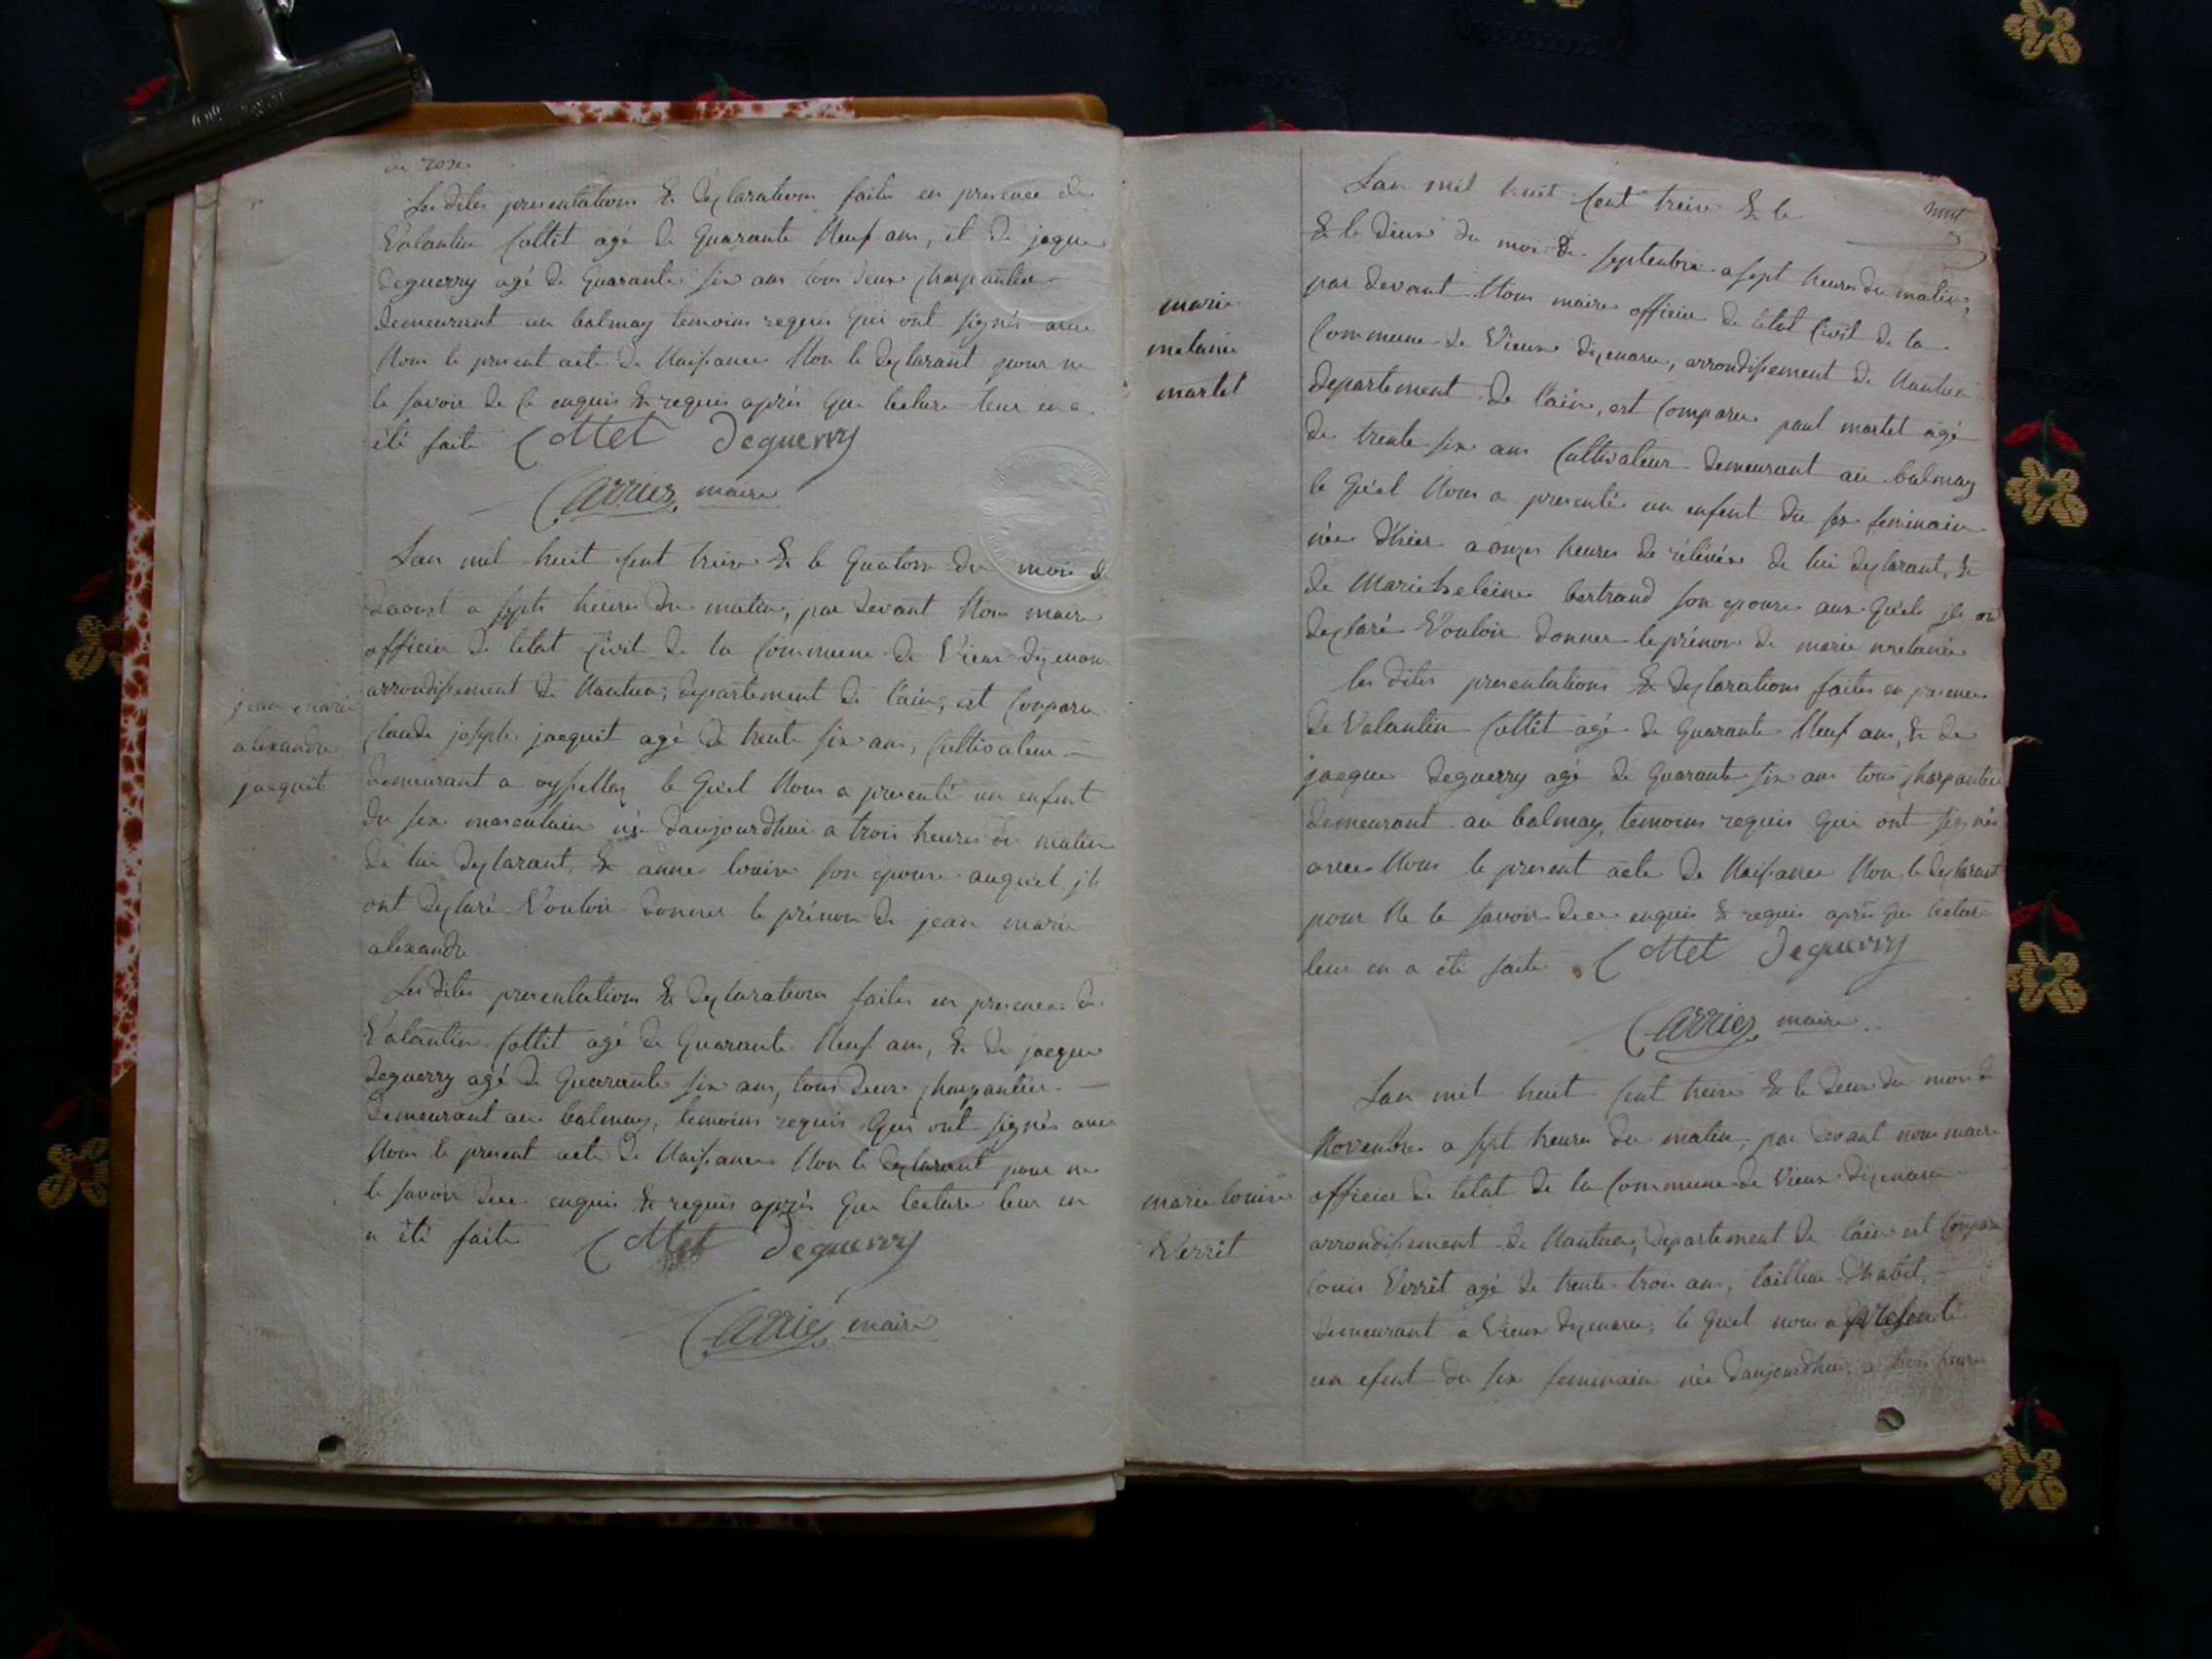 Les dites presentations & declarations faites en presence de
Valantin Cottet agé de Quarante Neuf ans, et de jaque
deguerry agé de Quarante six ans tous deux charpantier
demeurant au balmay temoins requis qui ont signés avec
Nous le present acte de Naissance Non le declarant pour ne
le savoir de ce enquis & requis aprés que lecture leur en a
été faite Cottet Deguerry
Carrier maire
jean marie
alexandre
jacquet
Lan mil huit cent treize & le Quatorze du mois d
daoust a sept heures du matin, par devant Nous maire
officier de letat Civil de la Commune de Vieux dizenave
arrondissement de Nantua, departement de l'ain, est Comparu
Claude joseph jacquet agé de trente six ans, Cultivateur
demeurant a oyssellaz le Quel Nous a presenté un enfent
du sex masculain né daujourdhui a trois heures du matin
de lui declarant, & anne louise son epouse auquel jls
ont declaré Vouloir donner le prénom de jean marie
alexandre.
Les dites presentations & declarations faites en presence de
Valantin Cottet agé de Quarante Neuf ans, & de jacque
deguerry agé de Quarante six ans, tous deux charpantier
demeurant au balmay, temoins requis Qui ont signés avec
Nous le present acte de Naissance Non le declarant pour ne
le savoir de ce enquis & requis aprés Que lecture leur en
a été faite Cottet Deguerry
Carrier maire
Lan mil huit Cent treize & le
& le deux du mois de septembre a sept heures du matin,
marie
melanie
martel
par devant Nous maire officier de letat Civil de la
Commune de Vieux dizenave, arrondissement de Nantua
departement de l'ain, est Comparu paul martel agé
de trente six ans Cultivateur demeurant au balmay
le Quel Nous a presenté un enfent du sex feminain
née d'hier a onze heures de relevée de lui declarant, &
de Marie heleine bertrand son epouse aux Quels jls ont
declaré Vouloir donner le prénom de marie melanie
les dites presentations & declarations faites en presence
de Valantin Cottet agé de Quarante Neuf ans, & de
jacque deguerry agé de Quarante six ans tous charpantier
demeurant au balmay, temoins requis Qui ont signés
avec Nous le present acte de Naissance Non le declarant
pour Ne le savoir de ce enquis & requis aprés que lecture
leur en a été faite Cottet Deguerry
Carrier maire
Lan mil huit Cent treize & le deux du mois d
Novembre a sept heures du matin, par devant nous maire
marie louise
Verrit
officier de letat de la Commune de Vieux dizenave
arrondissement de Nantua, departement de l'ain est Comparu
louis Verrit agé de trente trois ans, tailleur d'habit,
demeurant a Vieux dizenave, le Quel nous a presenté
un efent du sex feminain née daujourdhui a heure